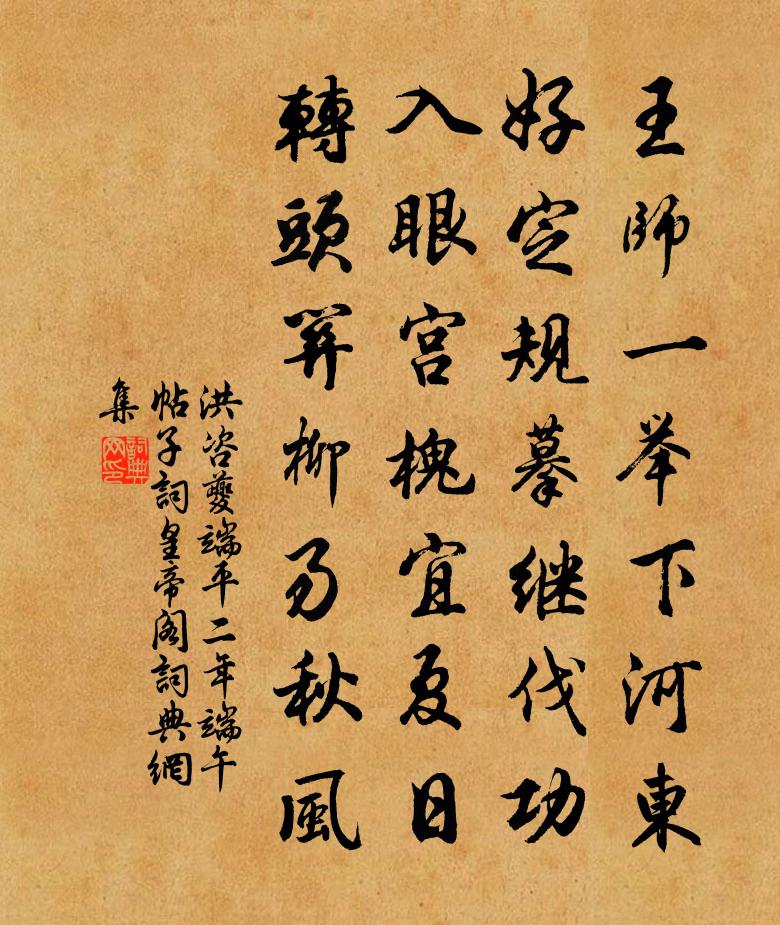 王師一举下河東
好定規摹继伐功
入眼宫槐宜夏日
轉頭柳易秋風
洪咨夔端平二年端午
帖子詞皇帝阁詞典網
集
詞典网印